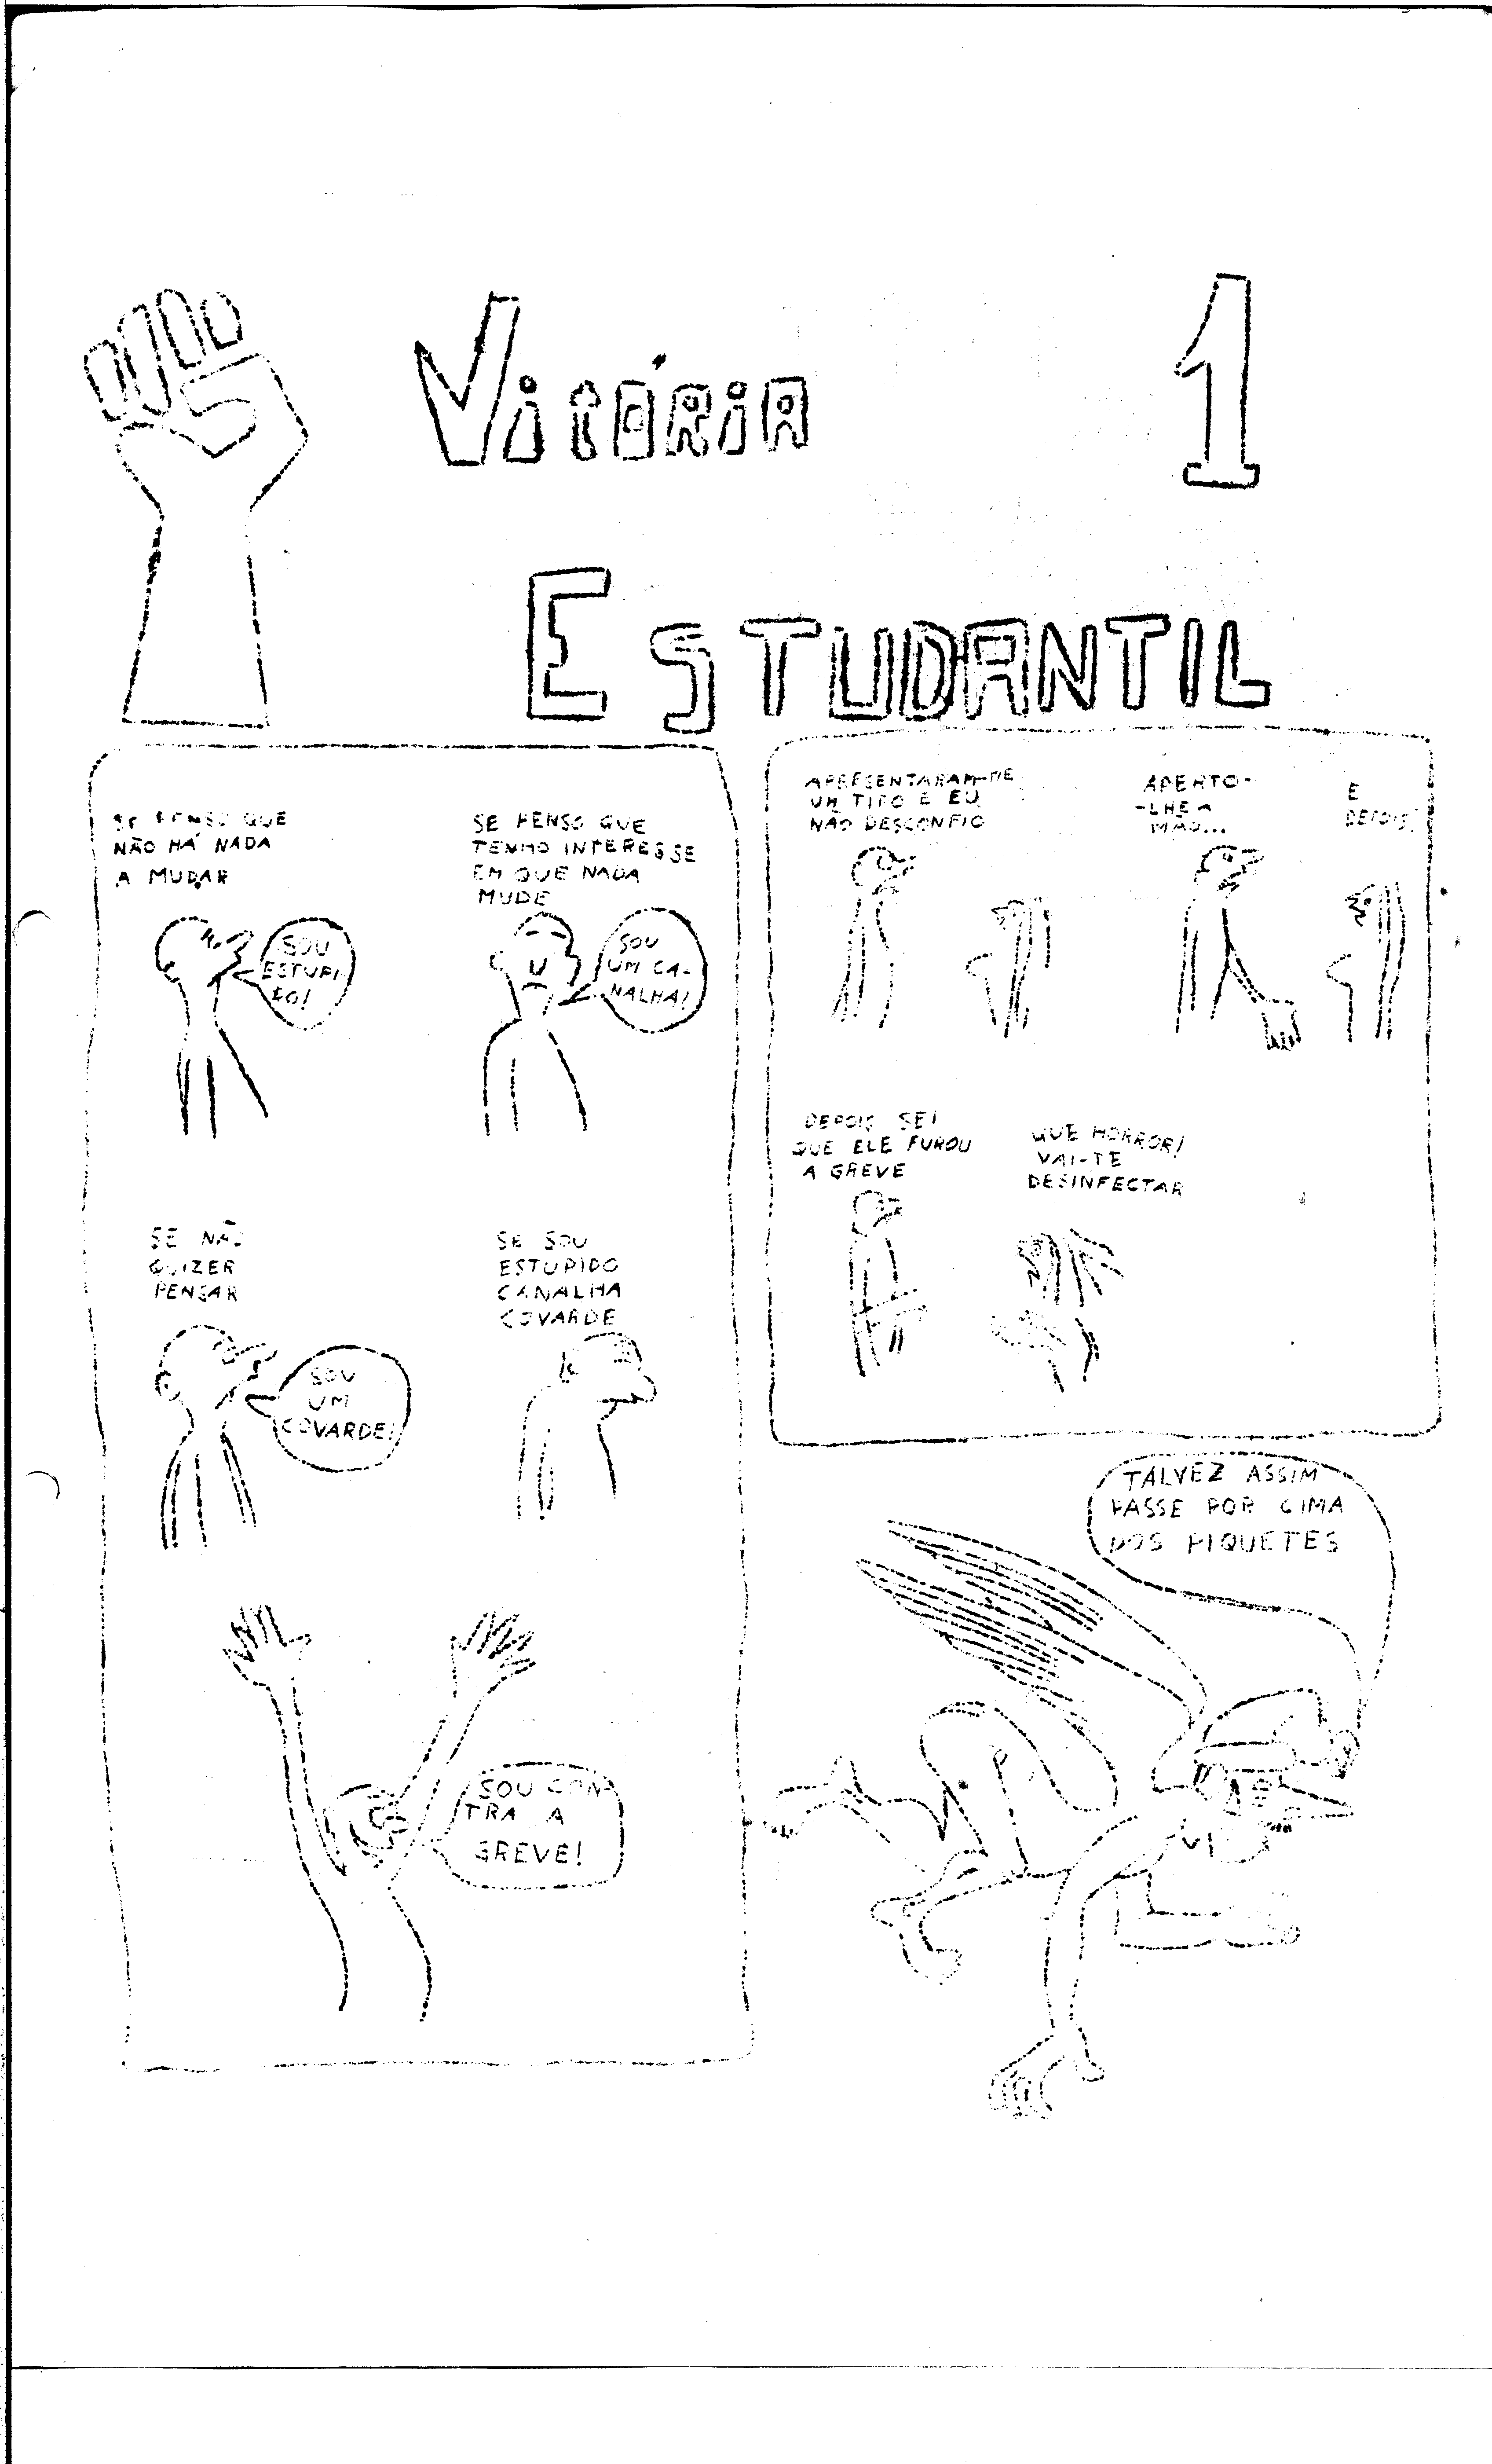 VITÓRIA
1
ESTUDANTIL
SE PENSO QUE
NÃO HÁ NADA
A MUDAR
SOU
ESTUPI-
DO!
SE PENSO QUE
TENHO INTERESSE
EM QUE NADA
MUDE
SOU
UM CA-
NALHA!
SE NÃO
QUIZER
PENSAR
SOU
UM
COVARDE!
SE SOU
ESTUPIDO
CANALHA
COVARDE
SOU CON-
TRA A
GREVE!
APRESENTARAM-ME
UM TIPO E EU
NÃO DESCONFIO
APERTO-
-LHE A
MÃO...
E
DEPOIS!
DEPOIS SEI
QUE ELE FUROU
A GREVE
QUE HORROR!
VAI-TE
DESINFECTAR
TALVEZ ASSIM
PASSE POR CIMA
DOS PIQUETES